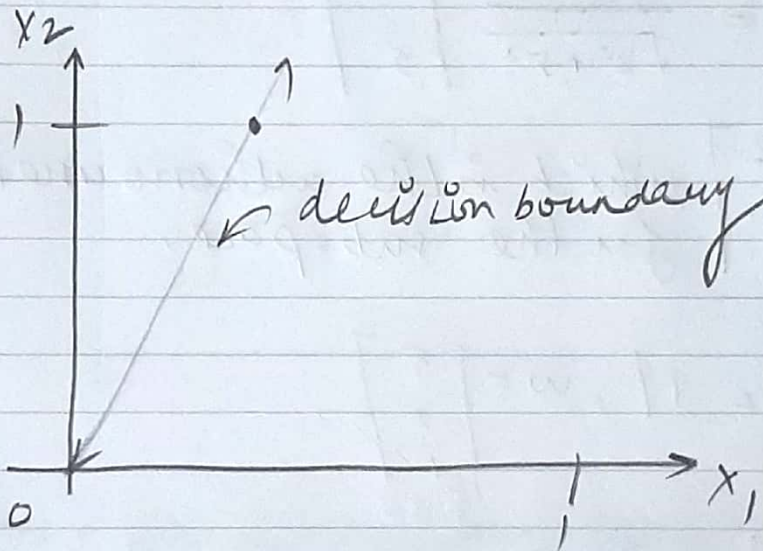 x2
1
decision boundary
0
1
x1